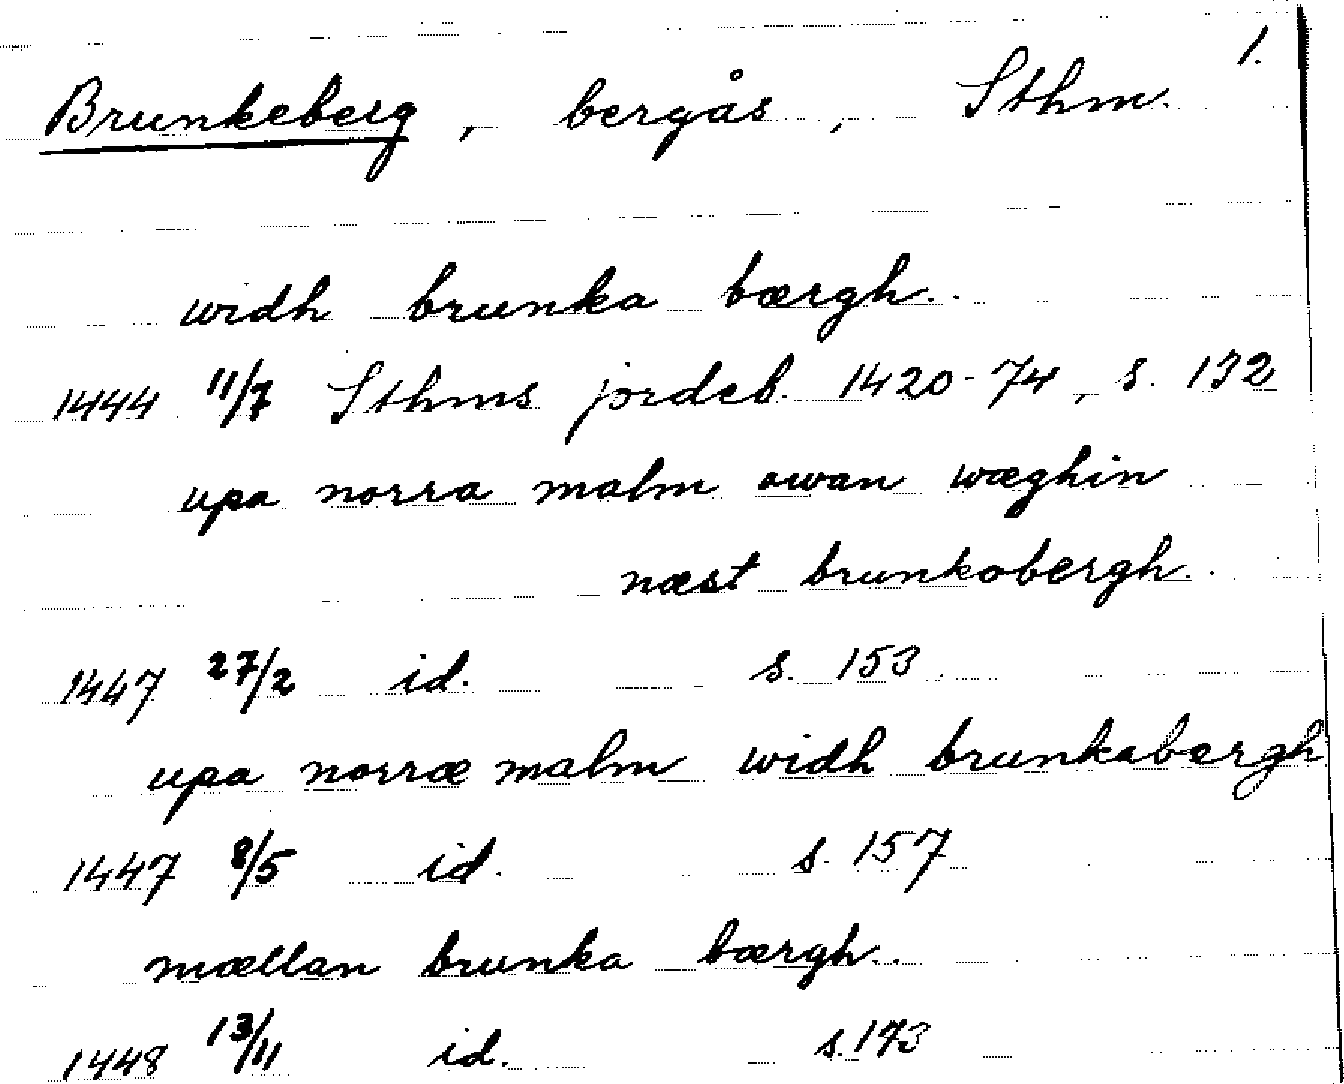 1.
Brunkeberg, bergås, Sthm.
widh brunka bærgh.
1444 11/7 Sthms jordeb. 1420-74, s. 132
upa norra malm owan wæghin
næst brunkobergh.
1447 27/2 id. s. 153
upa norræ malm widh brunkabergh
1447 8/5 id. s. 157
mællan brunka bærgh.
1448 13/11 id. s. 173